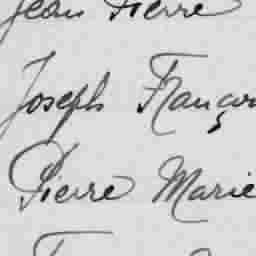 Jean Pierre
Joseph Françoi
Pierre Marie